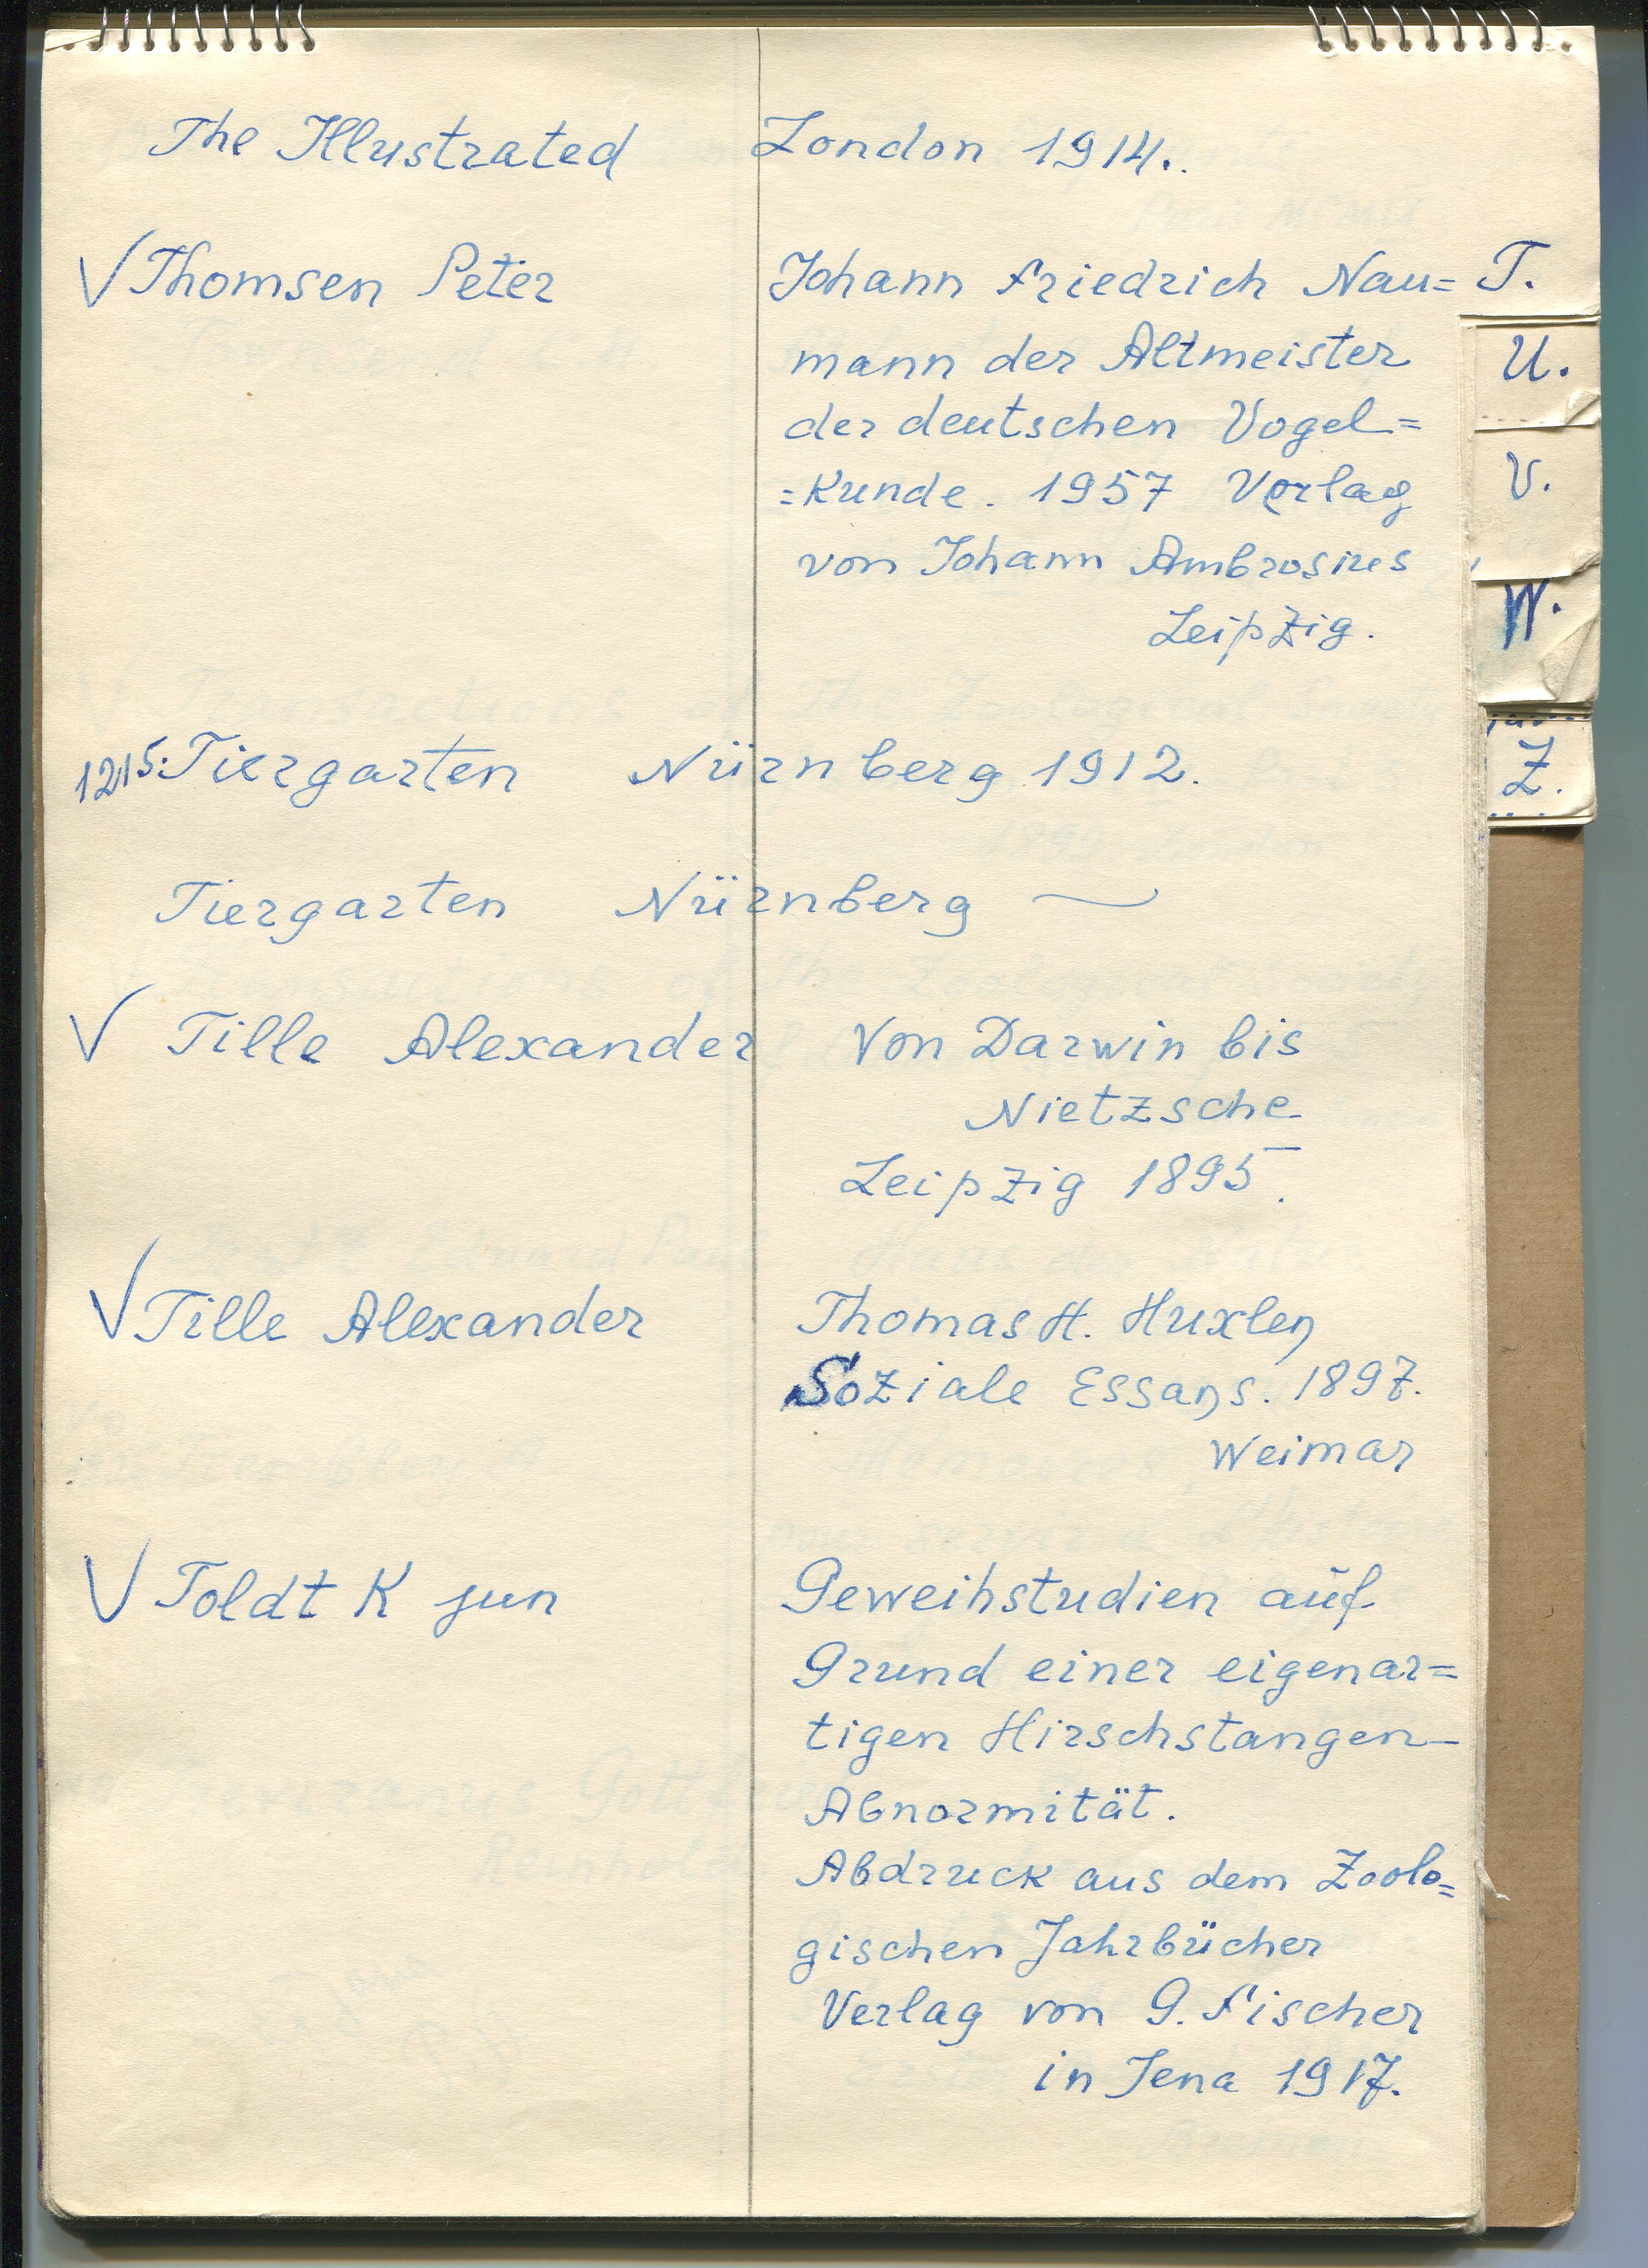 The Illustrated London 1914.
√ Thomsen Peter Johann Friedrich Nau=
mann der Altmeister
der deutschen Vogel=
=Kunde. 1957 Verlag
von Johann Ambrosius
Leipzig.
1215: Tiergarten Nürnberg 1912.
Tiergarten Nürnberg —
√ Tille Alexander Von Darwin bis
Nietzsche
Leipzig 1895.
√ Tille Alexander Thomas H. Huxley
Soziale Essays. 1897.
Weimar
√ Toldt K jun Geweihstudien auf
Grund einer eigenar=
tigen Hirschstangen-
Abnormität.
Abdruck aus dem Zoolo=
gischen Jahrbücher
Verlag von G. Fischer
in Jena 1917.
T.
U.
V.
W.
Z.